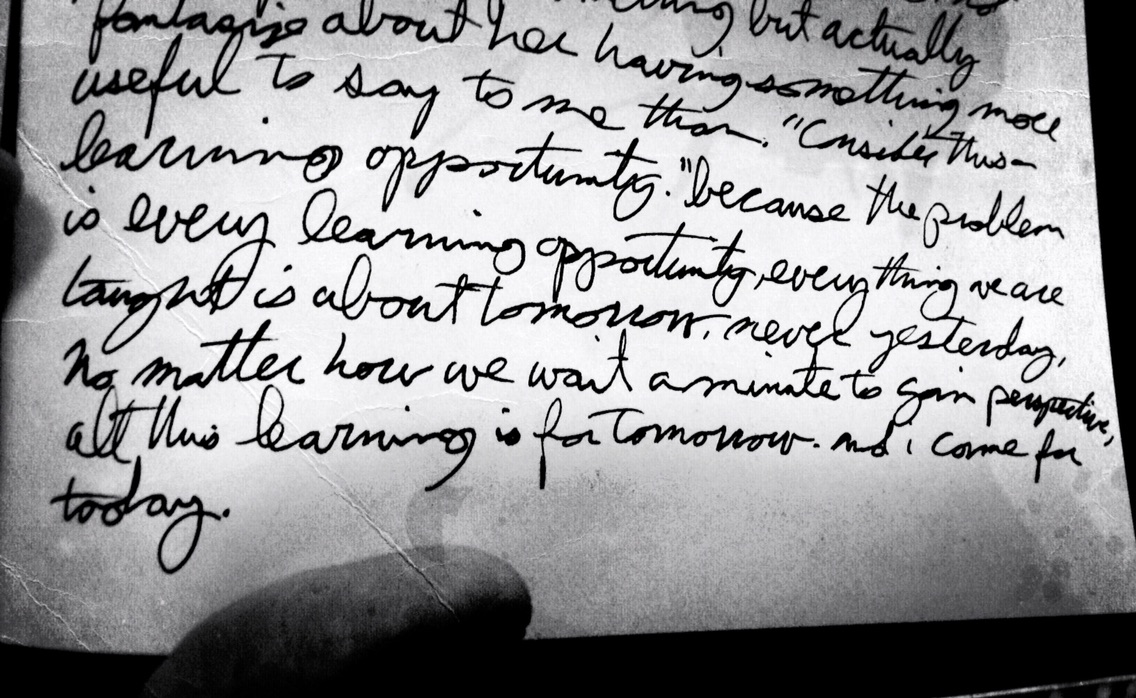 but actually
fantasize about her having something more
useful to say to me than. "Consider this a
learning opportunity." because the problem
is every learning opportunity, everything we are
taught is about tomorrow, never yesterday,
No matter how we wait a minute to gain perspective,
all this learning is for tomorrow. and i come for
today.